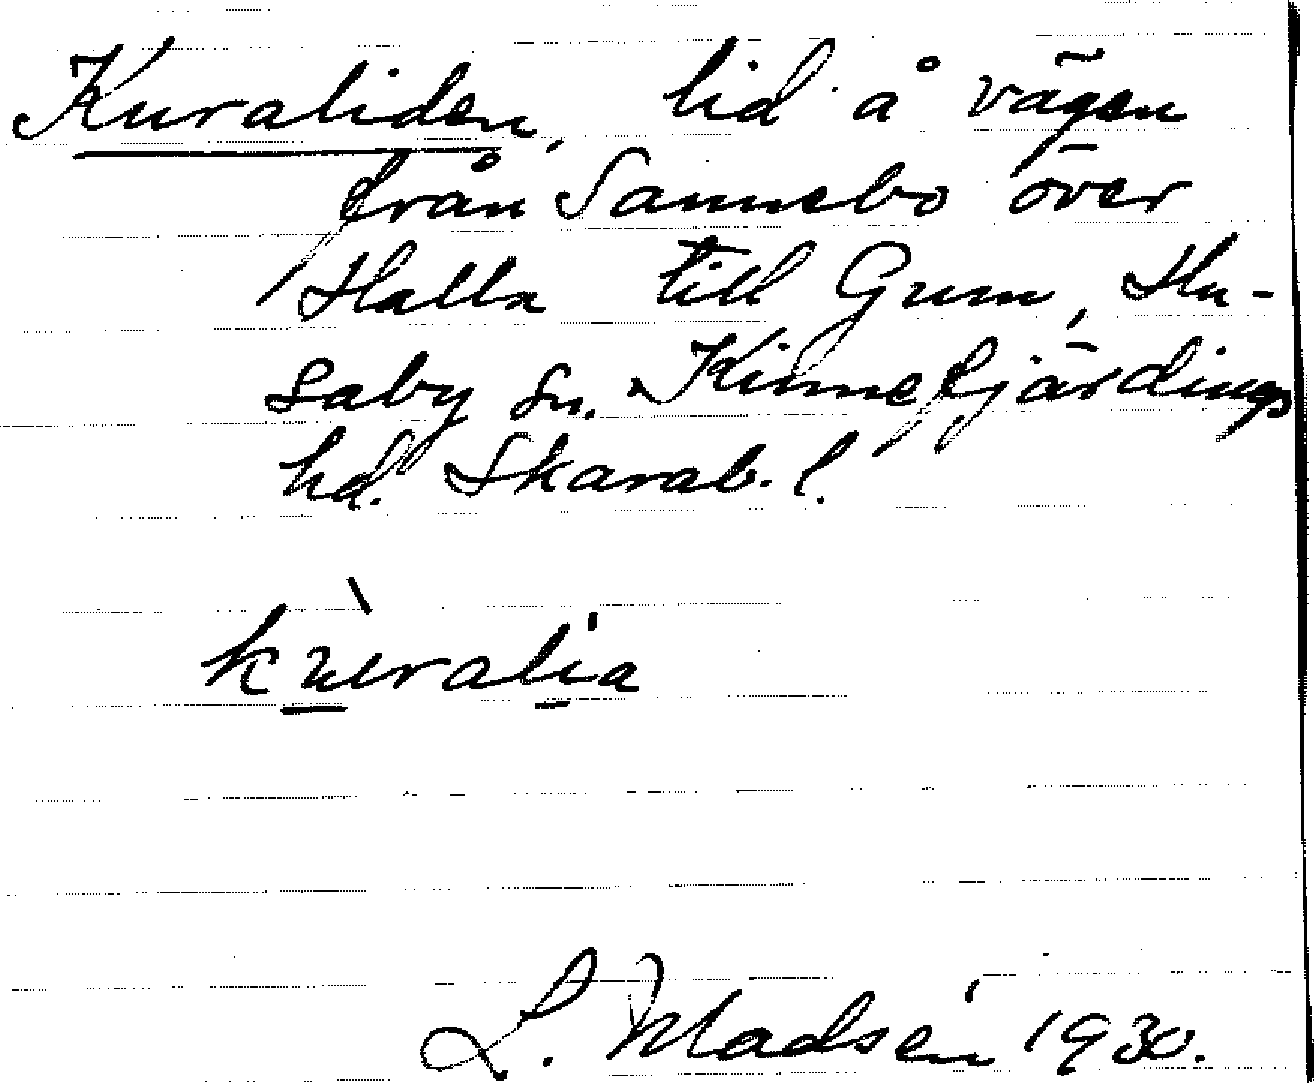 Kuraliden, lid å vägen
från Sannebo över
Halla till Gum, Hu-
saby sn. Kinnefjärdings
hd. Skarab. l.
kùralia
L. Madsén 1930.